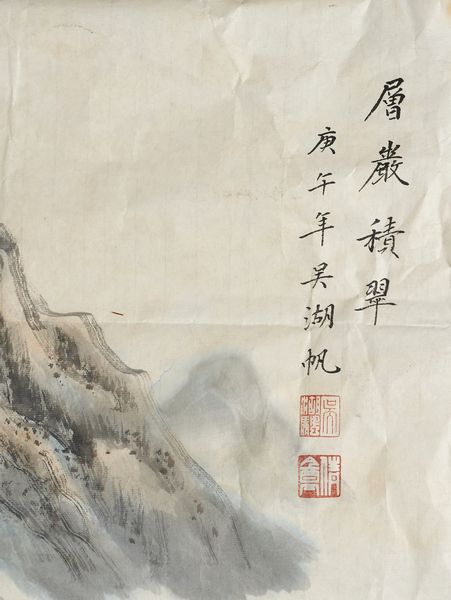 層巖積翠
庚午年吳湖帆